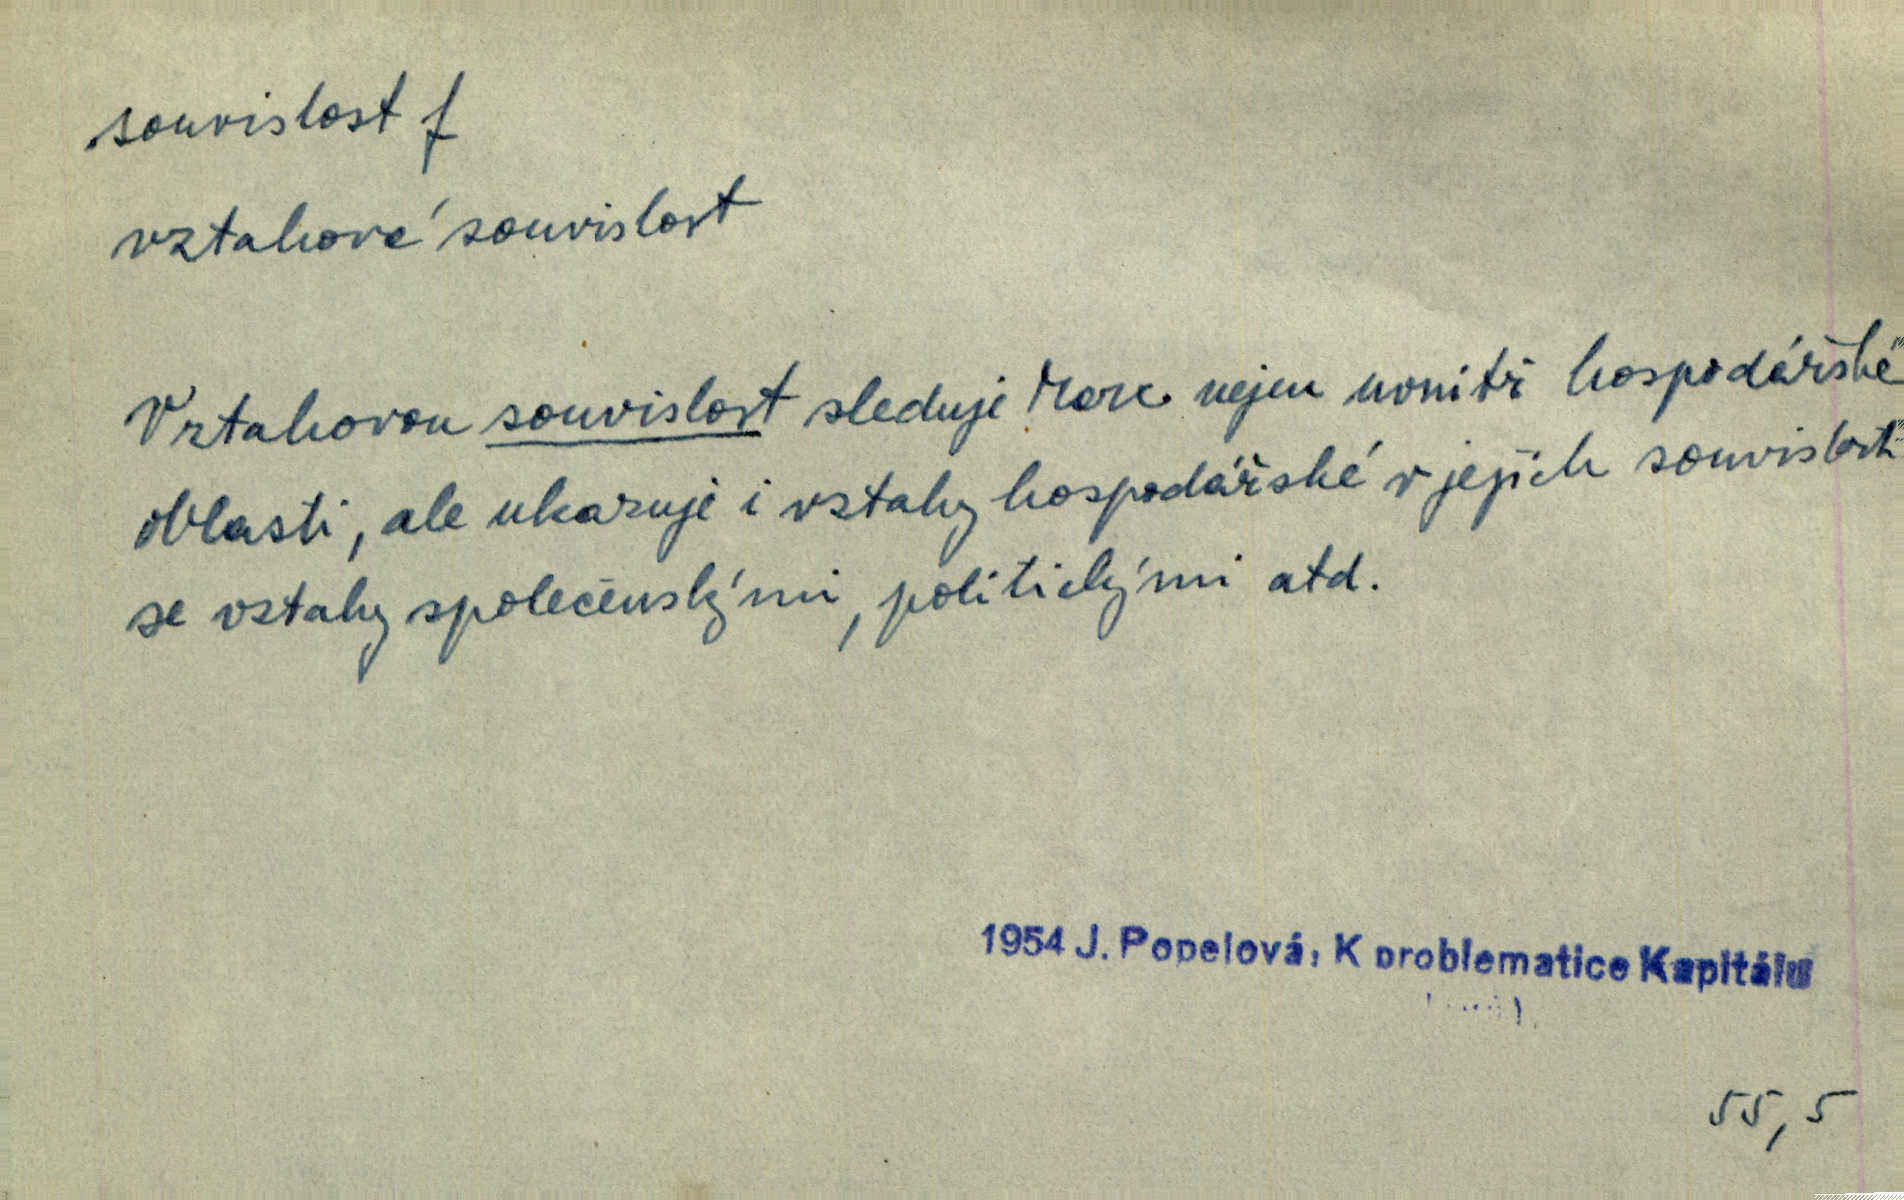 souvislost f
vztahové souvislost
Vztahovou souvislost sleduje Marx nejen uvnitř hospodářské
oblasti, ale ukazuje i vztahy hospodářské v jejich souvislosti
se vztahy společenskými, politickými atd.
1954 J. Popelová: K problematice Kapitálu
55,5